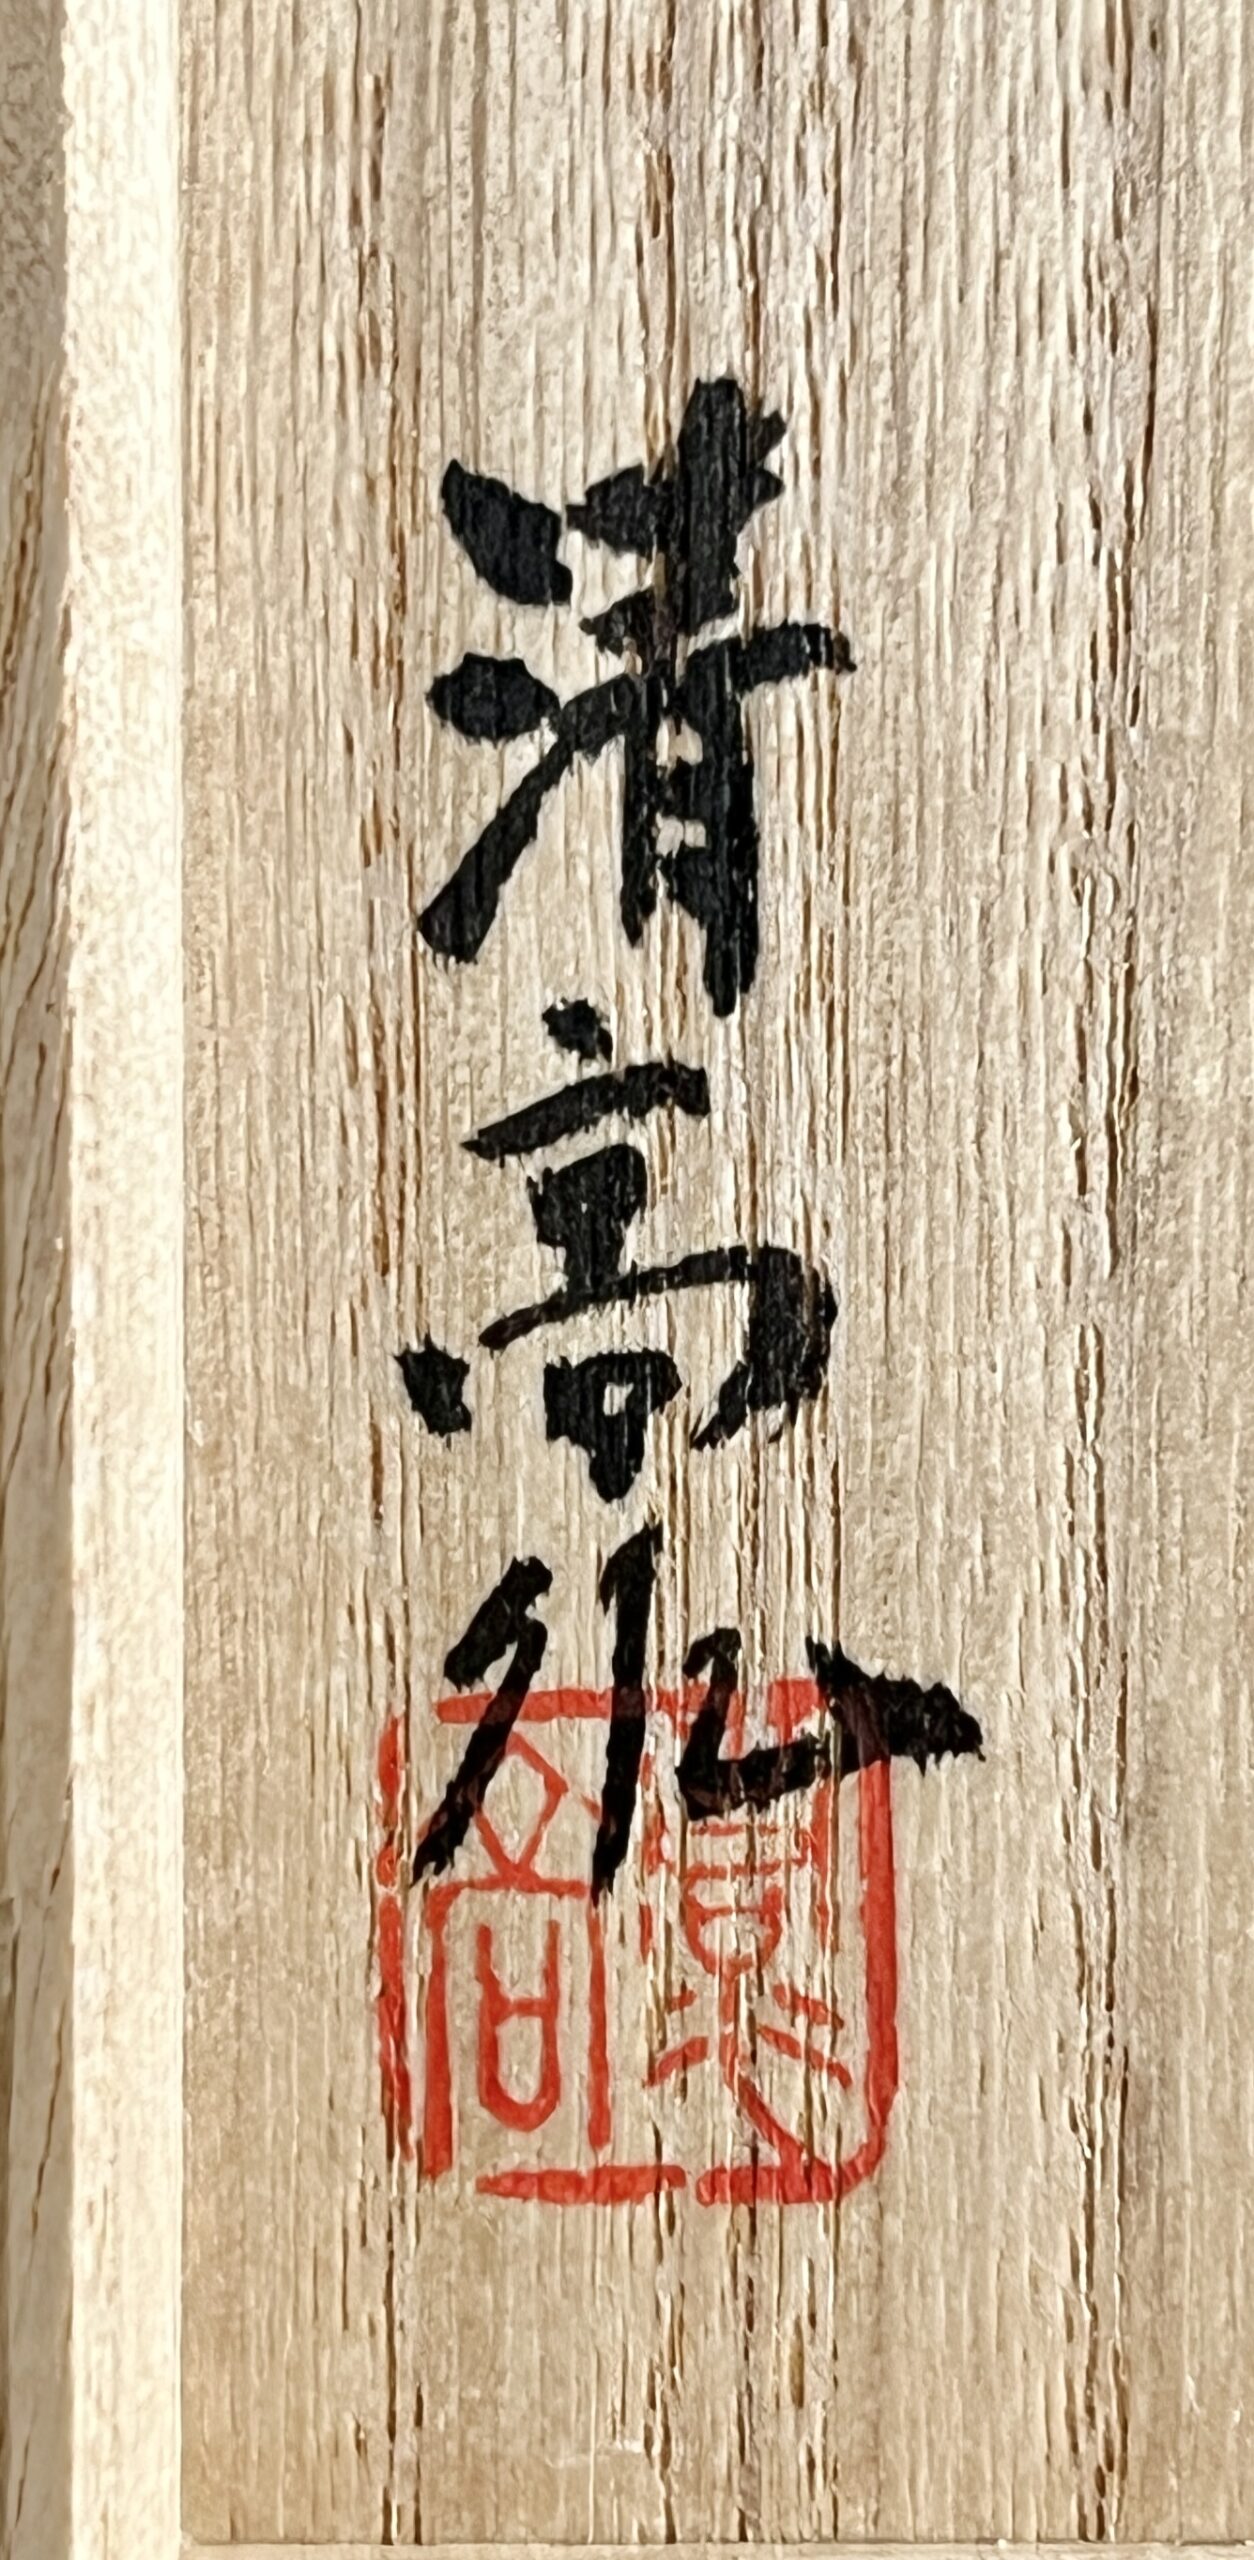 清高作